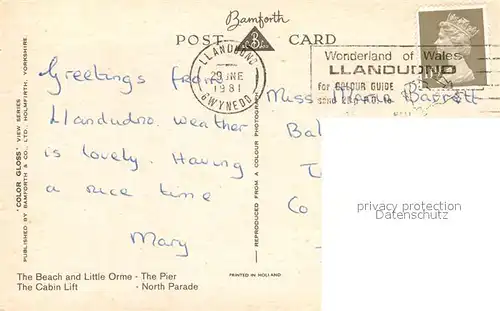 Bamforth
POST CARD
LLANDUDNO
29 JNE
1981
GWYNEDD
Wonderland of Wales
LLANDUDNO
for COLOUR GUIDE
send
Greetings from
Llandudno. weather
is lovely. Having
a nice time
Mary
Miss Barrett
Bal
Co
privacy protection
Datenschutz
"COLOR GLOSS" VIEW SERIES
PUBLISHED BY BAMFORTH & CO., LTD. HOLMFIRTH, YORKSHIRE.
REPRODUCED FROM A COLOUR PHOTOGRAPH
The Beach and Little Orme - The Pier
The Cabin Lift - North Parade
PRINTED IN HOLLAND